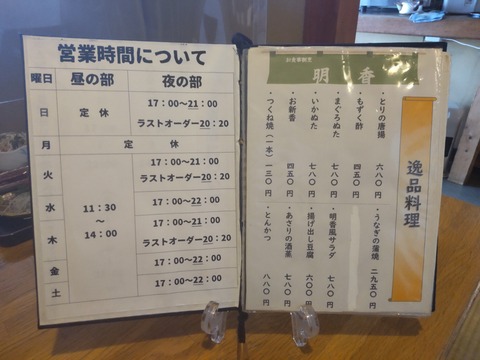 営業時間について
曜日 昼の部 夜の部
日 定休 17:00〜21:00
ラストオーダー20:20
月 定休
火 17:00〜21:00
ラストオーダー20:20
水 17:00〜22:00
11:30
〜
14:00
木 17:00〜21:00
ラストオーダー20:20
金 17:00〜22:00
土 17:00〜22:00
明香
逸品料理
・とりの唐揚 六八〇円
・もずく酢 四五〇円
・まぐろぬた 七八〇円
・いかぬた 七八〇円
・お新香 四五〇円
・つくね焼(一本) 一三〇円
・うなぎの蒲焼 二九五〇円
・明香風サラダ 七八〇円
・揚げ出し豆腐 六〇〇円
・あさりの酒蒸 七八〇円
・とんかつ 八八〇円